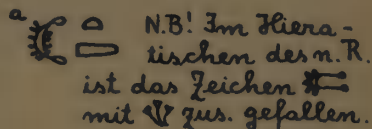 a N.B! Im Hiera-
tischen des n. R.
ist das Zeichen
mit zus. gefallen.